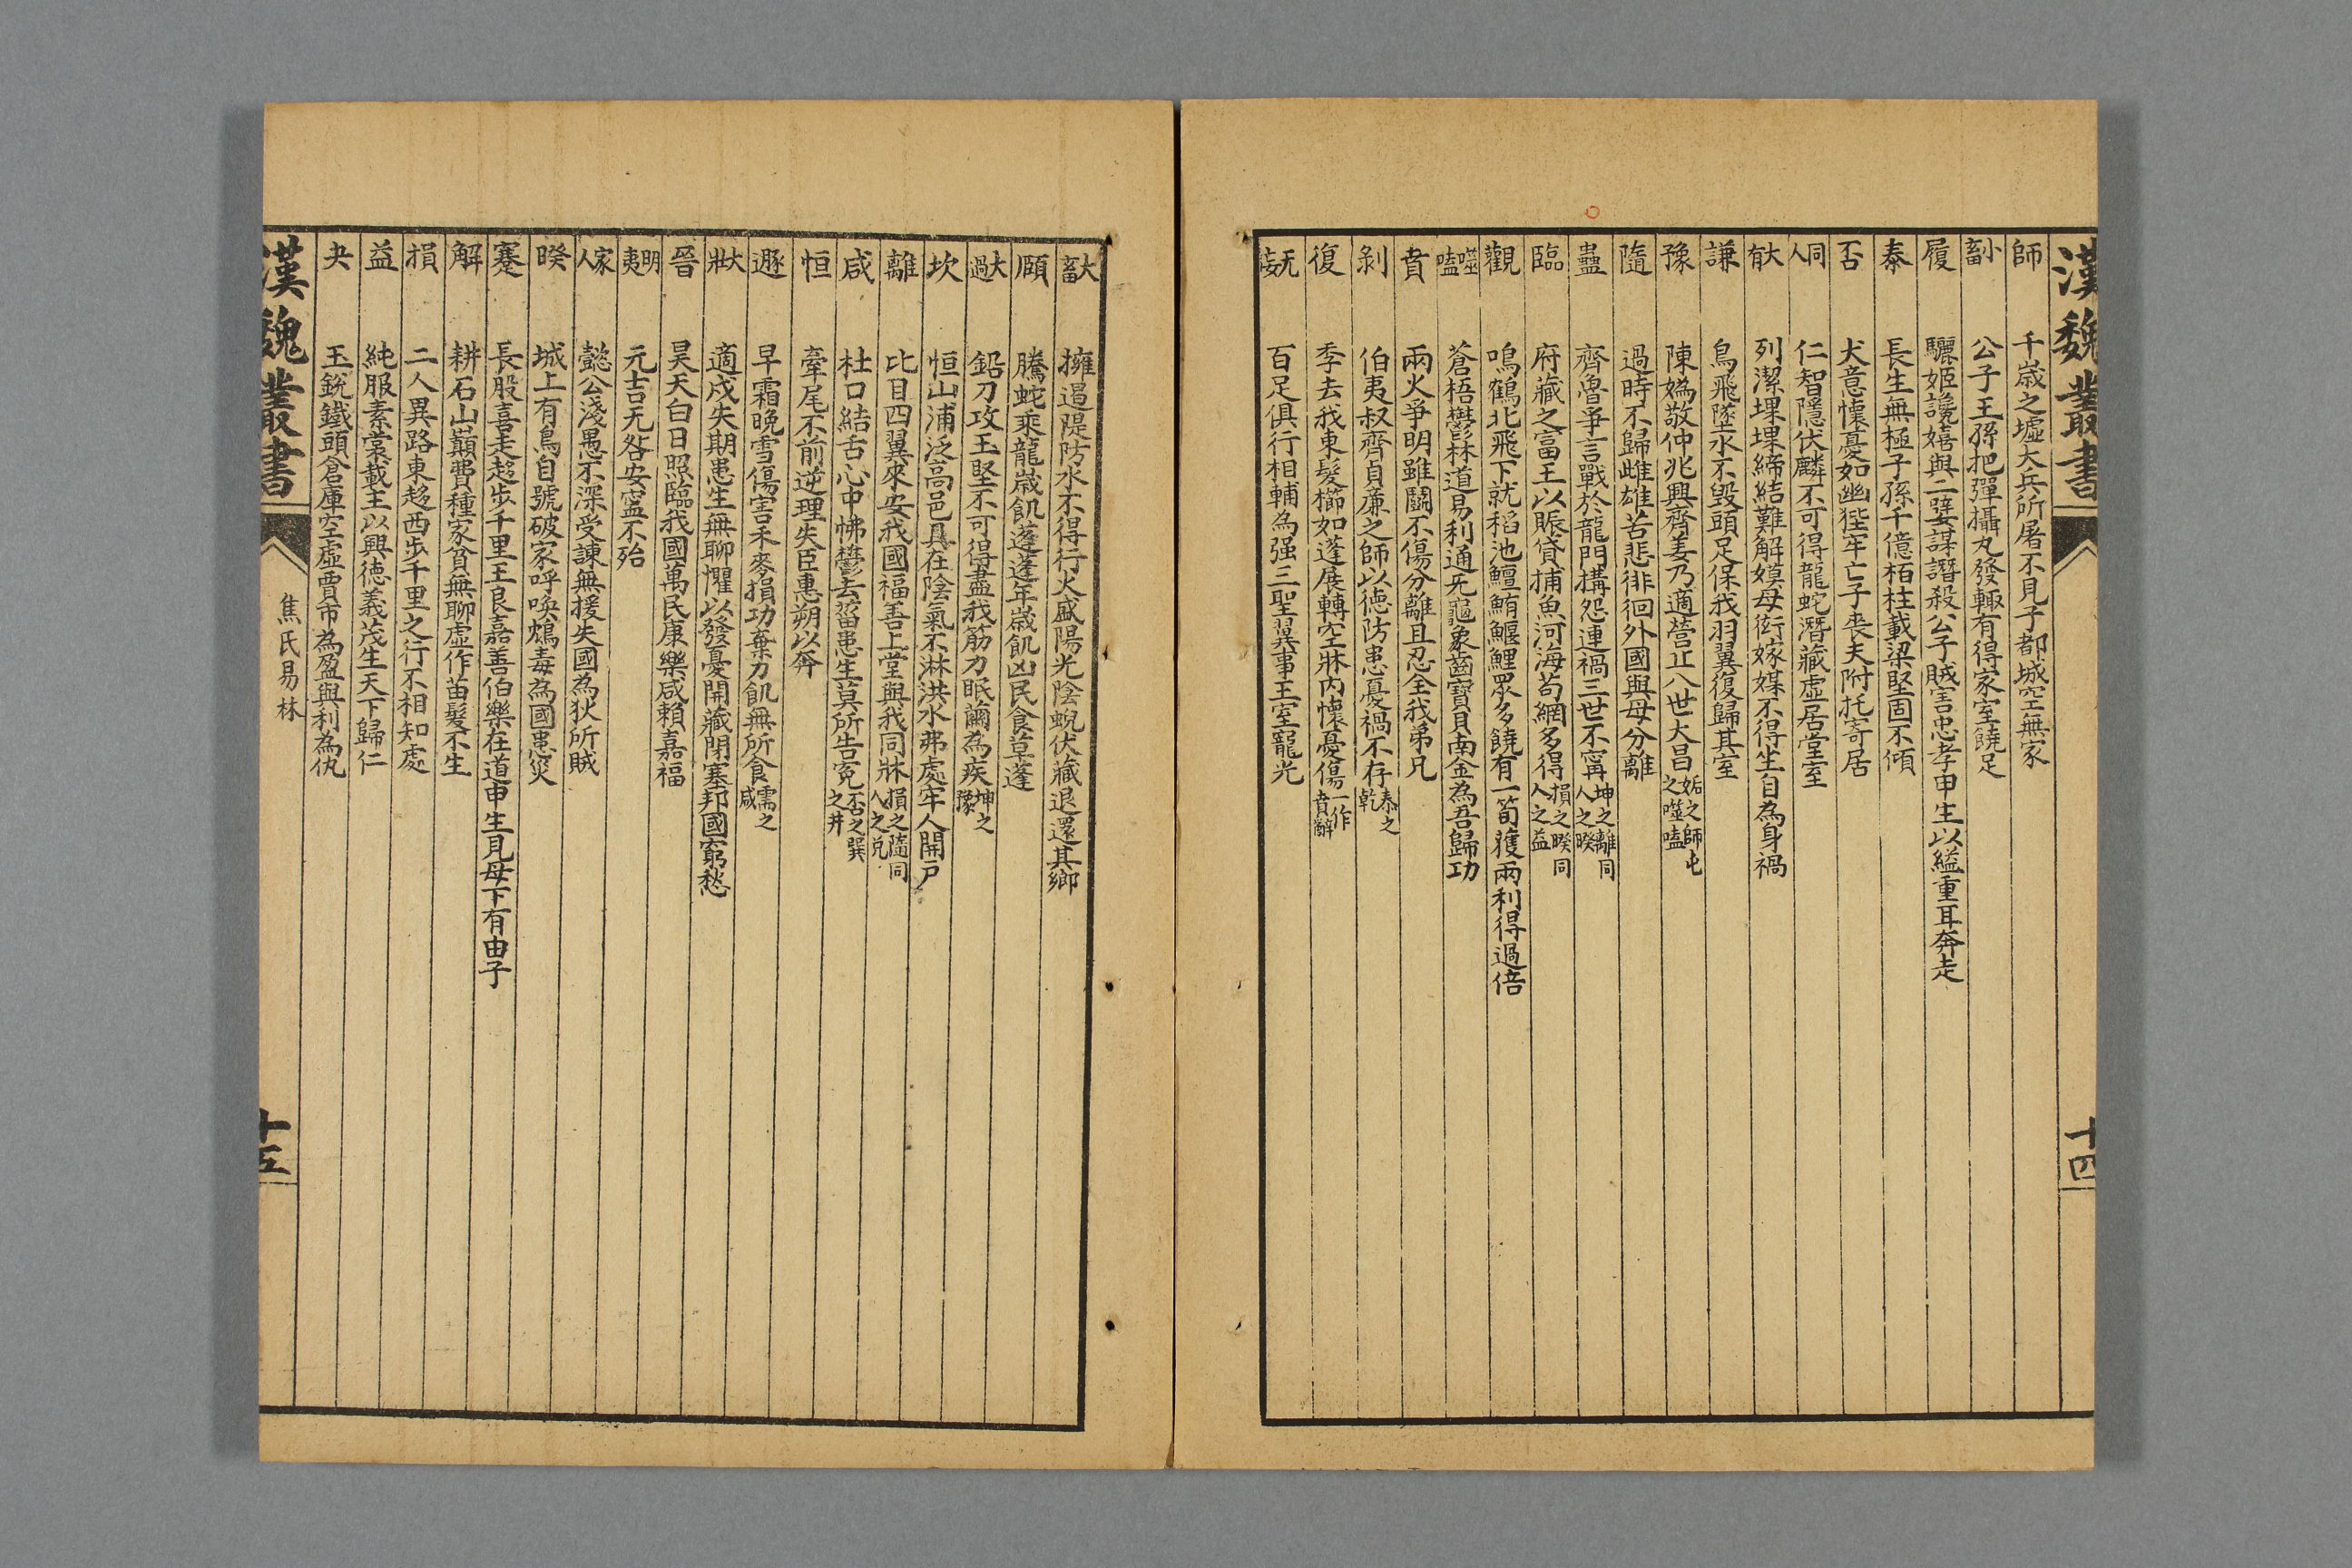 漢魏叢書 十四
師 千歲之墟大兵所屠不見子都城空無家
小畜 公子王孫把彈攝丸發輙有得家室饒足
履 驪姬讒嬉與二嬖謀譖殺公子賊害忠孝申生以縊重耳奔走
泰 長生無極子孫千億栢柱載梁堅固不傾
否 犬意懷憂如幽狴牢亡子喪夫附托寄居
同人 仁智隱伏麟不可得龍蛇潛藏虛居堂室
大有 列潔堁堁締結難解嫫母衒嫁媒不得生自為身禍
謙 鳥飛墜水不毀頭足保我羽翼復歸其室
豫 陳媯敬仲兆興齊姜乃適營丘八世大昌 姤之師屯之噬嗑
隨 過時不歸雌雄苦悲徘徊外國與母分離
蠱 齊魯爭言戰於龍門搆怨連禍三世不寗 坤之離同人之睽
臨 府藏之富王以賑貸捕魚河海苟網多得 損之睽同人之益
觀 鳴鶴北飛下就稻池鱣鮪鰋鯉眾多饒有一笱獲兩利得過倍
噬嗑 蒼梧鬱林道易利通元龜象齒寶貝南金為吾歸功
賁 兩火爭明雖鬭不傷分離且忍全我弟兄
剝 伯夷叔齊貞廉之師以徳防患憂禍不存 泰之乾
復 季去我東髮櫛如蓬展轉空牀內懷憂傷 一作賁辭
无妄 百足俱行相輔為强三聖翼事王室寵光
大畜 擁遏隄防水不得行火盛陽光陰蜺伏藏退還其鄉
頤 騰蛇乘龍歲飢蓬蓬年歲飢凶民食草蓬
大過 鉛刀攻玉堅不可得盡我筋力眠繭為疾 坤之豫
坎 恒山浦泛高邑具在陰氣不淋洪水弗處牢人開戸
離 比目四翼來安我國福善上堂與我同牀 損之隨同人之兌
咸 杜口結舌心中怫鬱去菑患生莫所告冤 否之巽之井
恒 牽尾不前逆理失臣惠朔以奔
遯 早霜晚雪傷害禾麥損功棄力飢無所食 需之咸
大壯 適戍失期患生無聊懼以發憂開藏閉塞邦國窮愁
晉 昊天白日照臨我國萬民康樂咸賴嘉福
明夷 元吉无咎安寍不殆
家人 懿公淺愚不深受諫無援失國為狄所賊
睽 城上有鳥自號破家呼喚鴆毒為國患災
蹇 長股喜走趍步千里王良嘉善伯樂在道申生見母下有由子
解 耕石山巔費種家貧無聊虛作苗髮不生
損 二人異路東趍西步千里之行不相知處
益 純服素裳載主以興徳義茂生天下歸仁
夬 玉銳鐵頭倉庫空虛賈市為盈與利為仇
漢魏叢書 焦氏易林 十五